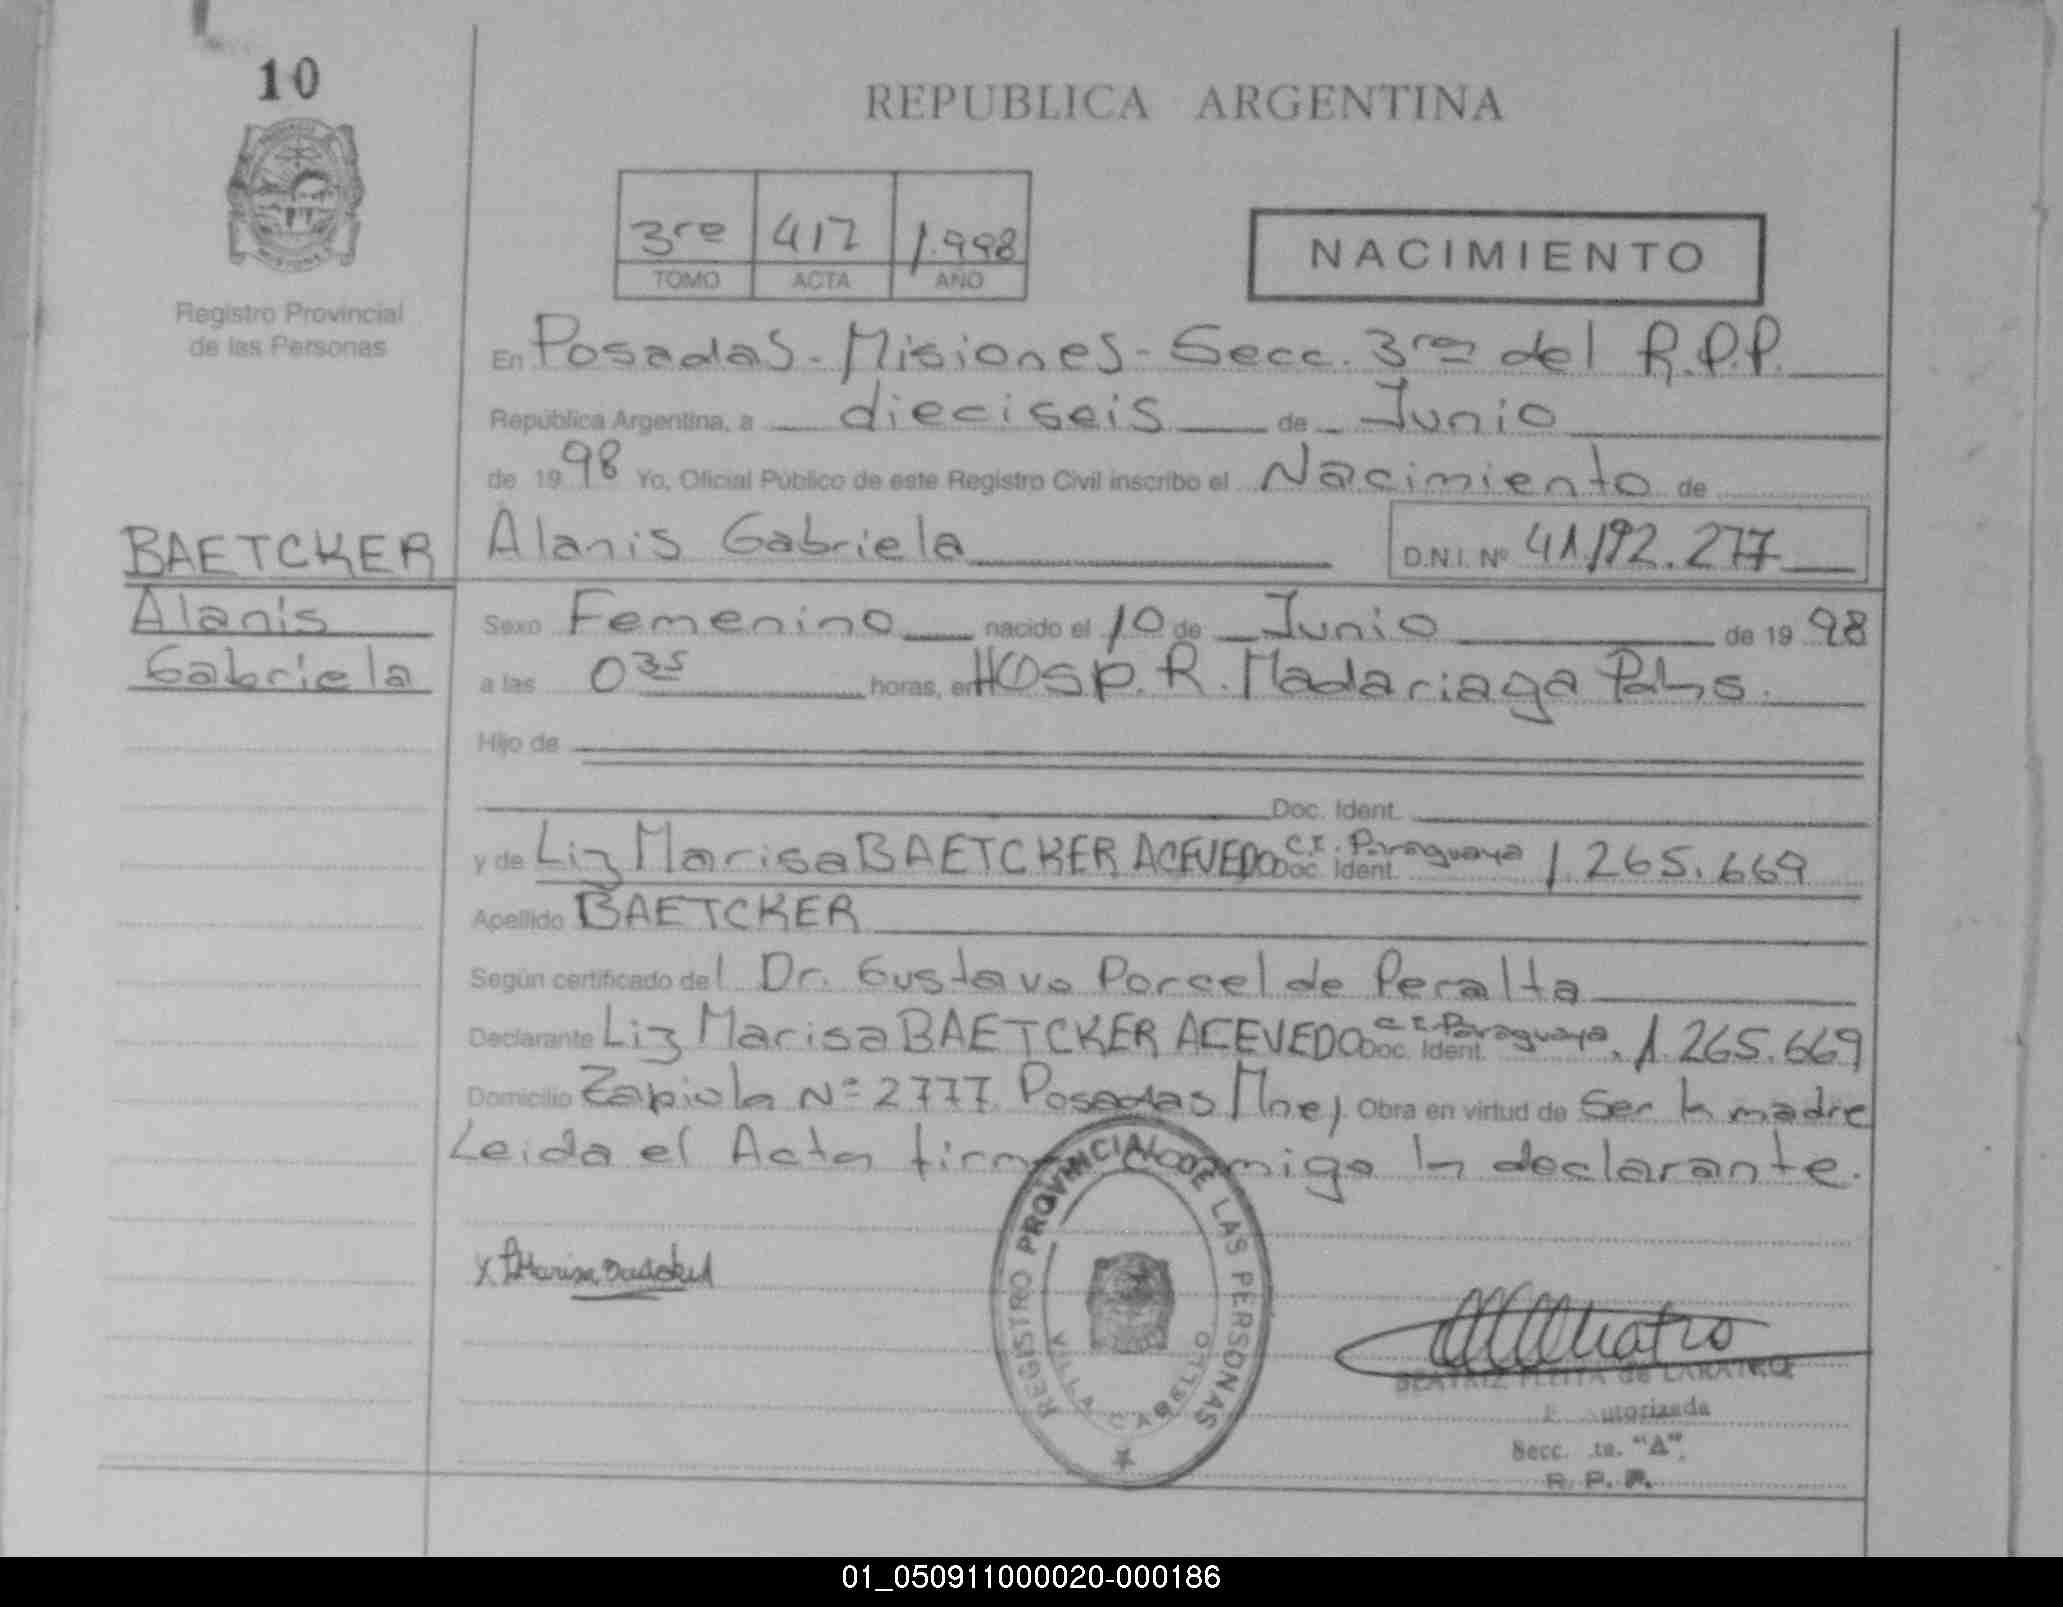 10
REPUBLICA ARGENTINA
3re 417 1.998
TOMO ACTA AÑO
NACIMIENTO
Registro Provincial
de las Personas
En Posadas - Misiones - Secc. 3ra del R.P.P.
República Argentina, a dieciseis de Junio
de 1998 Yo, Oficial Público de este Registro Civil inscribo el Nacimiento de
BAETCKER
Alanis Gabriela D.N.I. Nº 41.192.277
Alanis
Gabriela
Sexo Femenino nacido el 10 de Junio de 1998
a las 0 35 horas, en Hosp. R. Madariaga
Hijo de
Doc. Ident.
y de Liz Marisa BAETCKER ACEVEDO Doc. Ident. C.I. Paraguaya 1.265.669
Apellido BAETCKER
Según certificado del Dr. Gustavo Porcel de Peralta
Declarante Liz Marisa BAETCKER ACEVEDO Doc. Ident. C.I. Paraguaya 1.265.669
Domicilio Zapiola Nº 2777 Posadas Mnes. Obra en virtud de Ser la madre
Leida el Acta firma conmigo la declarante.
REGISTRO PROVINCIAL DE LAS PERSONAS
VILLA CABELLO
BEATRIZ de
Autorizada
Secc. "A"
R. P. P.
01_050911000020-000186